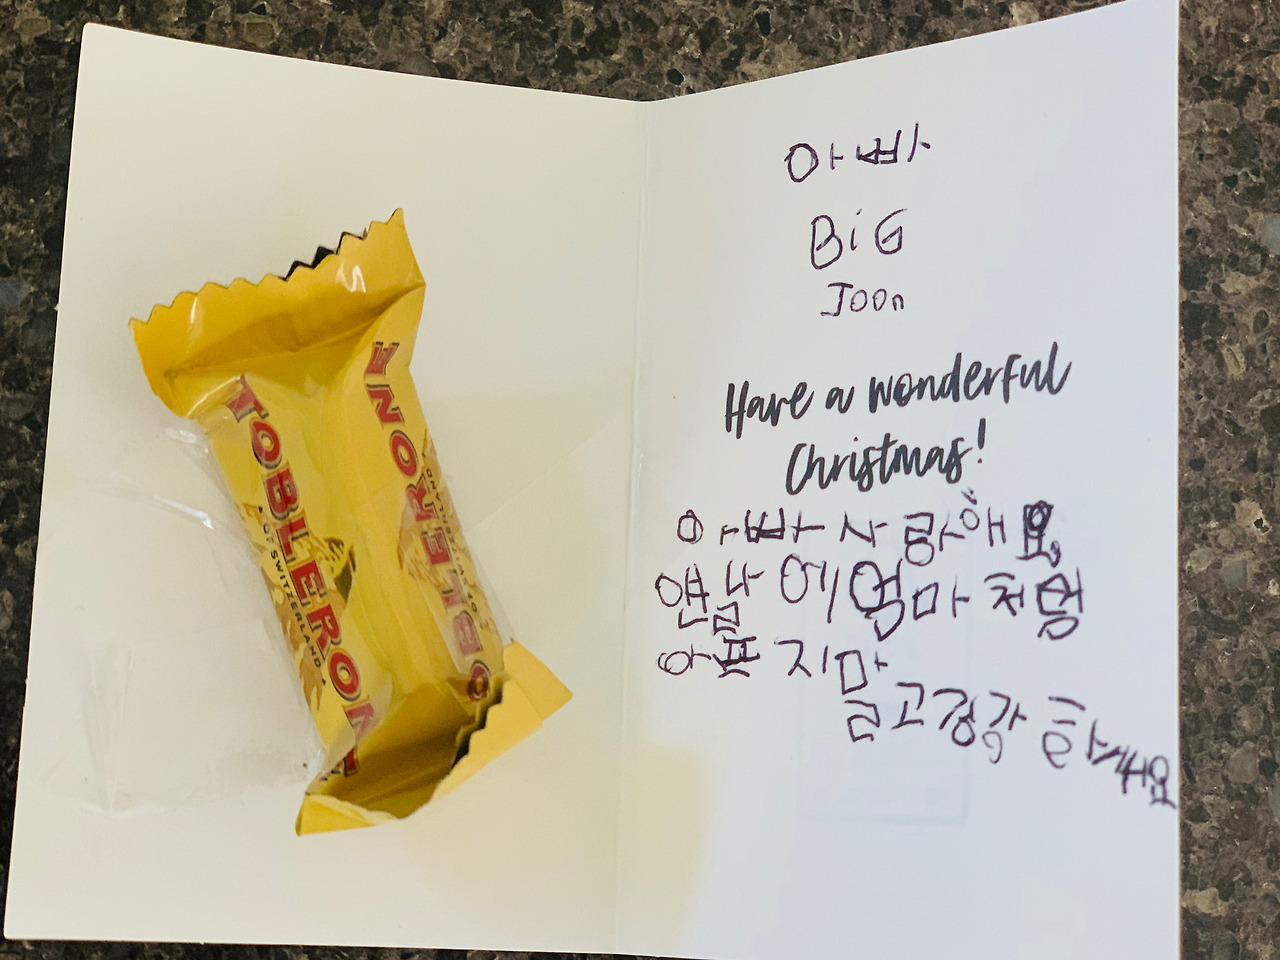 TOBLERONE
OF SWITZERLAND
TOBLERONE
아빠
BiG
Joon
Have a wonderful
Christmas!
아빠 사랑해요
연말에 엄마 처럼
아프 지마
ㄹ고 겅강 하세요